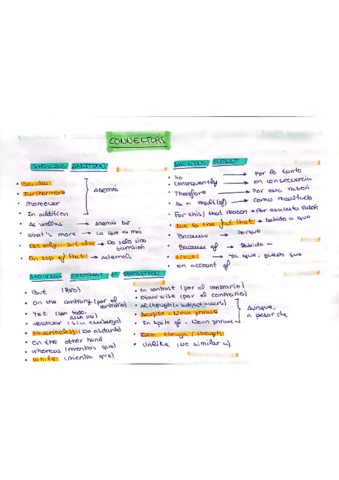 CONNECTORS
SHOWING ADDITION
• Besides
• Furthermore
• Moreover
• In addition
además
• As well as → además de
• What's more → Lo que es más
• Not only... but also → No solo sino también
• On top of that → además
SHOWING RESULT
• So → Por lo tanto
• Consequently → en consecuencia
• Therefore → Por esta razón
• As a result (of) → Como resultado
• For this / that reason → Por esa/esta razón
• Due to the fact that → debido a que
• Because → Porque
• Because of → Debido a
• Since → Ya que, puesto que
• On account of
SHOWING CONTRAST OR
• But (Pero)
• On the contrary (por el contrario)
• Yet (con todo, aun así)
• However (sin embargo)
• Nevertheless (No obstante)
• On the other hand
• whereas (mientras que)
• While (mientras que)
• In contrast (por el contrario)
• Otherwise (por el contrario)
• Although (+ subject + verb)
• Despite + Noun phrase
• In spite of + Noun phrase
• Even though / though
Aunque, a pesar de
• Unlike (no similar a)